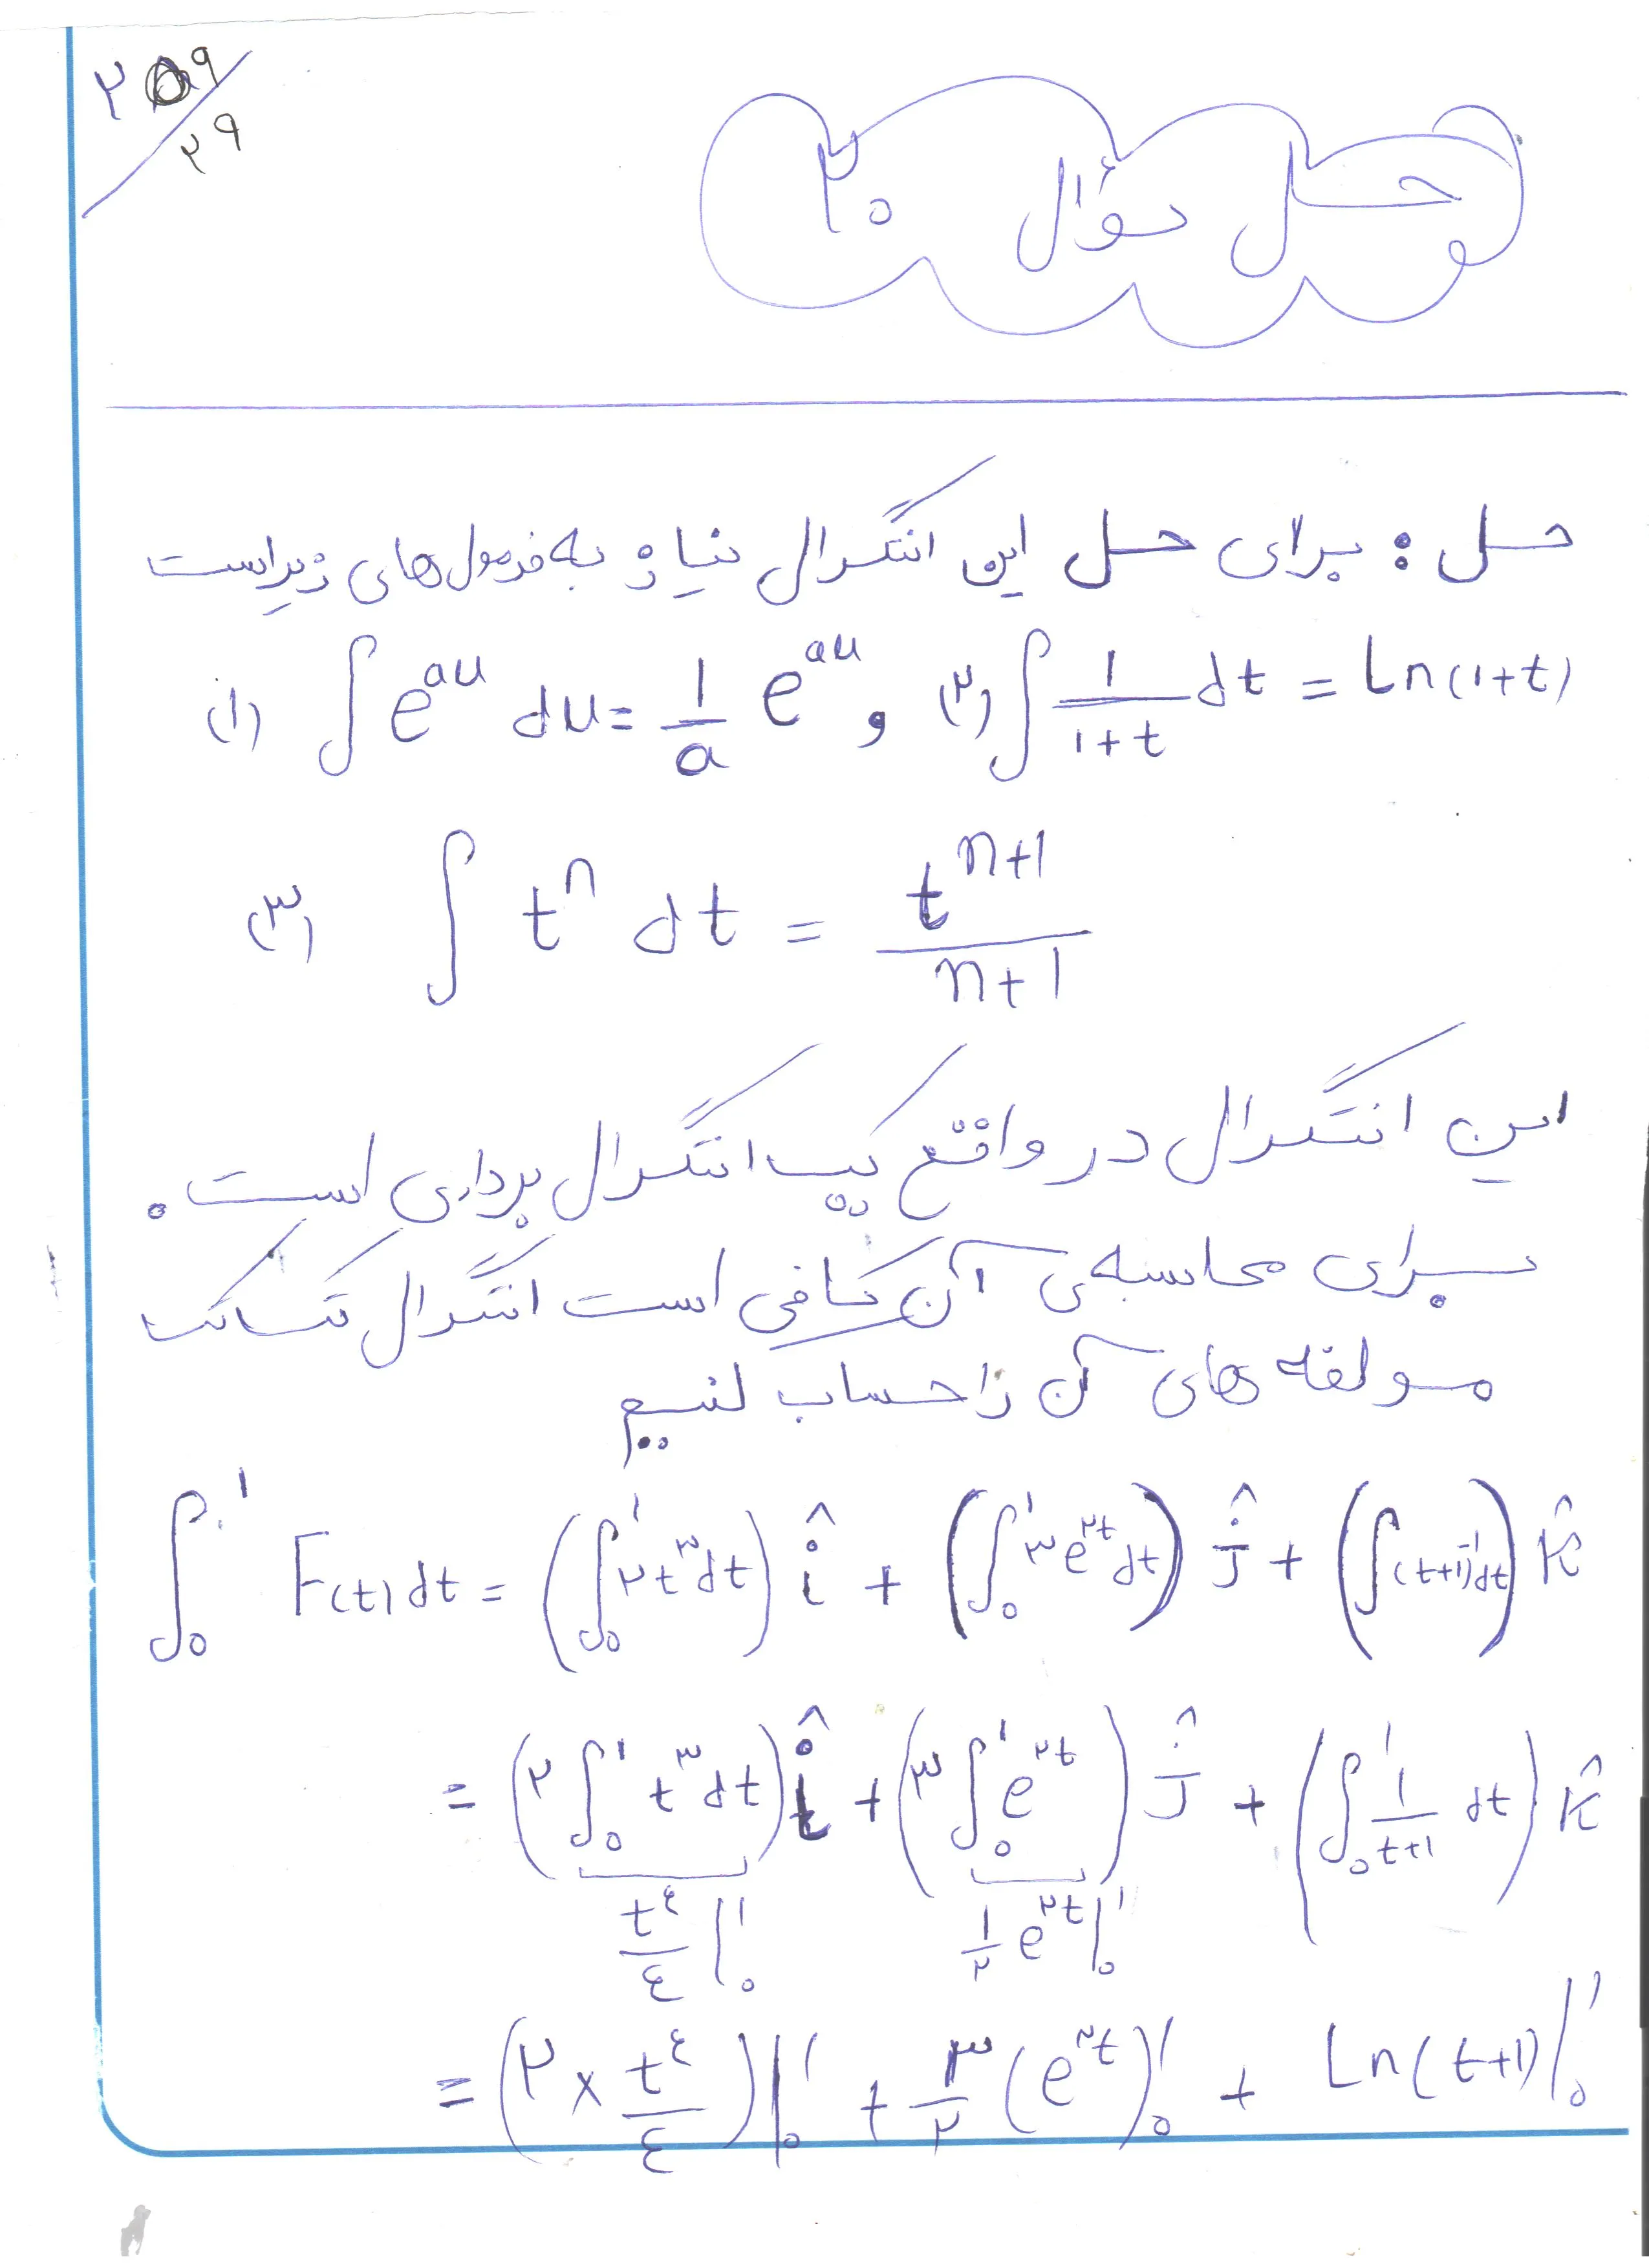 ۲۹
حل سؤال ۲۰
حل : برای حل این انتگرال نیاز به فرمول‌های زیر است
(۱) ∫ e^{au} du = 1/a e^{au} و (۲) ∫ 1/(1+t) dt = Ln(1+t)
(۳) ∫ t^n dt = t^{n+1}/(n+1)
این انتگرال در واقع یک انتگرال برداری است .
برای محاسبه‌ی آن کافی است انتگرال تک تک
مولفه های آن را حساب کنیم
∫_0^1 F(t) dt = (∫_0^1 ۲t^۳ dt) î + (∫_0^1 ۳e^{۲t} dt) ĵ + (∫ (t+1)^{-1} dt) k̂
= (۲ ∫_0^1 t^۳ dt) î + (۳ ∫_0^1 e^{۲t}) ĵ + (∫_0^1 1/(t+1) dt) k̂
t^۴/۴ |_0^1 1/۲ e^{۲t} |_0^1
= (۲ × t^۴/۴) |_0^1 + ۳/۲ (e^{۲t}) |_0^1 + Ln(t+1) |_0^1